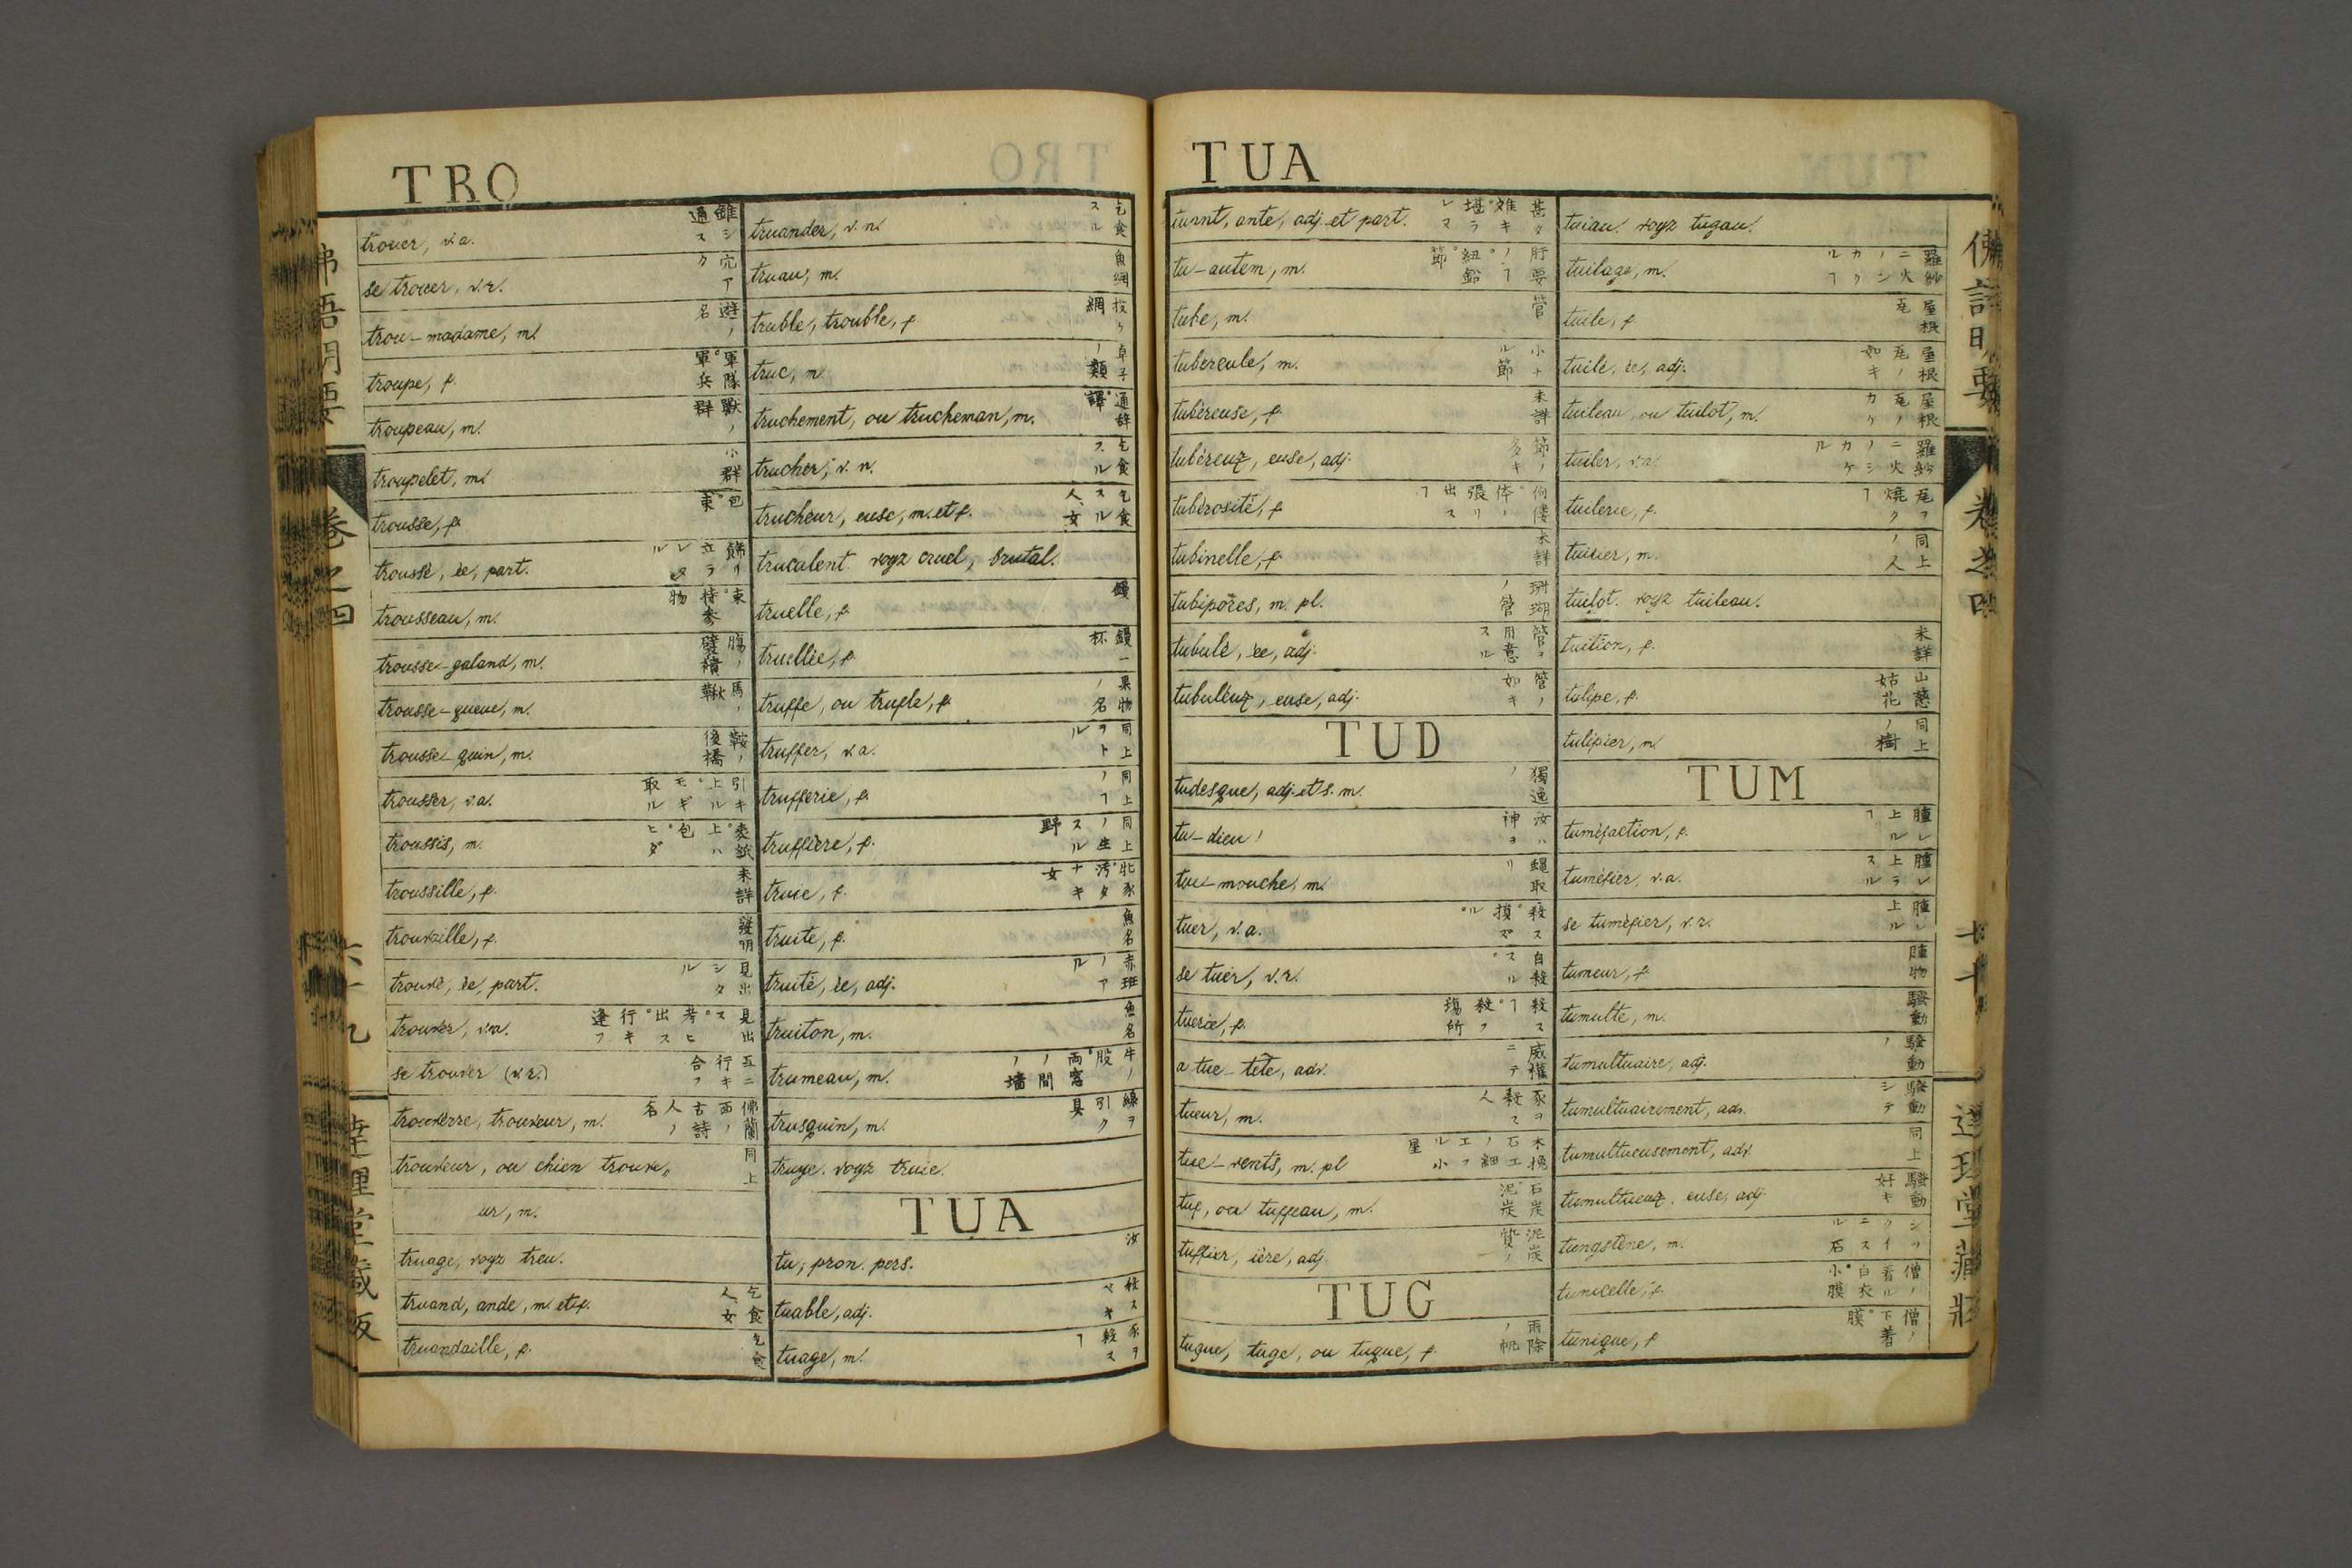 TRO
trouer, v.a. 錐シ通ス
se trouer, v.r. 穴アク
trou-madame, m. 遊ノ名
troupe, f. 軍隊。軍兵
troupeau, m. 獣ノ群
troupelet, m. 小群
trousse, f. 包。束
troussé, ée, part. 飾リ立ラレタル
trousseau, m. 束。持参物
trousse-galand, m.
trousse-queue, m. 馬ノ鞦
trousse-quin, m. 鞍ノ後橋
trousser, v.a. 引キ上ル。モギ取ル
troussis, m.
troussille, f. 未詳
trouvaille, f. 發明
trouvé, ée, part. 見出シタル
trouver, v.a. 見出ス。考ヒ出ス。行キ逢フ
se trouver (v.r.) 互ニ行キ合フ
trouvèrre, trouveur, m. 佛蘭西ノ古詩人ノ名
trouveur, ou chien trouve- 同上
ur, m.
truage, voyz treu.
truand, ande, m. et f. 乞食人、女
truandaille, f. 乞食
truander, v.n. 乞食スル
truau, m. 魚網
truble, trouble, f. 投ケ網
truc, m. 卓子ノ類
truchement, ou trucheman, m. 通辞。譯
trucher, v.n. 乞食スル
trucheur, euse, m. et f. 乞食スル人、女
truculent voyz cruel, brutal.
truelle, f. 鏝
truellée, f. 鏝一杯
truffe, ou trufle, f. 果物ノ名
truffer, v.a. 同上ヲトル
trufferie, f. 同上ノヿ
truffière, f. 同上ノ生スル野
truie, f. 牝豕。汚タナキ女
truite, f. 魚名
truité, ée, adj. 赤班ノアル
truiton, m. 魚名
trumeau, m. 牛ノ股。両窓ノ間ノ墻
trusquin, m. 線ヲ引ク具
truye. voyz truie.
TUA
tu, pron. pers. 汝
tuable, adj. 殺スベキ
tuage, m. 豕ヲ殺スヿ
TUA
tuant, ante, adj. et part. 甚タ難キ。堪ラレマ
tu-autem, m. 肝要ノヿ。紐鈕。節
tube, m. 管
tubercule, m. 小ナル節
tubéreuse, f. 未詳
tubéreuz, euse, adj. 節ノ多キ
tubérosité, f. 佝僂。体ノ張リ出スヿ
tubinelle, f. 未詳
tubipores, m. pl. 珊瑚ノ管
tubulé, ée, adj. 管ヲ用意スル
tubuleuz, euse, adj. 管ノ如キ
TUD
tudesque, adj. et s. m. 獨逸ノ
tu-dieu! 汝ハ神ヨ
tue-mouche, m. 蠅取リ
tuer, v.a. 殺ス。損ズル。
se tuer, v.r. 自殺ルス。
tuerie, f. 殺スヿ。殺ス場所
a tue-tête, adv. 威權ニテ
tueur, m. 豕ヲ殺ス人
tue-vents, m. pl
tuf, ou tuffeau, m. 石炭。泥炭
tuffier, ière, adj. 泥炭質ノ
TUG
tugue, tuge, ou tuque, f. 雨除ノ帆
tuiau. voyz tugau.
tuilage, m. 羅紗ニ火ノシカクルヿ
tuile, f 屋根瓦
tuilé, ée, adj. 屋根瓦ノ如キ
tuileau, ou tuilot, m. 屋根瓦ノカケ
tuiler, v.a. 羅紗ニ火ノシカケル
tuilerie, f. 瓦ヲ燒クヿ
tuilier, m. 同上ノ人
tuilot. voyz tuileau.
tuition, f. 未詳
tulipe, f. 山慈姑花
tulipier, m. 同上ノ樹
TUM
tuméfaction, f. 腫レ上ルヿ
tuméfier, v.a. 腫レ上ラスル
se tuméfier, v.r. 腫レ上ル
tumeur, f. 腫物
tumulte, m. 騒動
tumultuaire, adj. 騒動ノ
tumultuairement, adv. 騒動シテ
tumultueusement, adv. 同上
tumultueuz, euse, adj. 騒動好キ
tungstène, m.
tunicelle, f. 僧ノ着ル白衣。小膜
tunique, f 僧ノ下着。膜
佛語明要 卷之四 七十 達理堂藏版